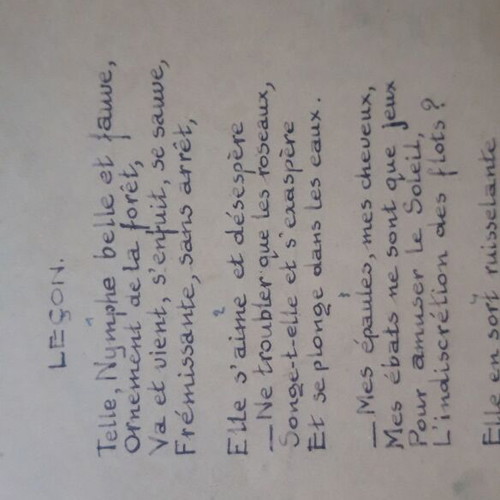 LEÇON.
Telle, Nymphe belle et fauve,
Ornement de la forêt,
Va et vient, s'enfuit, se sauve,
Frémissante, sans arrêt,
Elle s'aime et désespère
— Ne troubler que les roseaux,
Songe-t-elle et s'exaspère
Et se plonge dans les eaux.
— Mes épaules, mes cheveux,
Mes ébats ne sont que jeux
Pour amuser le Soleil,
L'indiscrétion des flots?
Elle en sort ruisselante